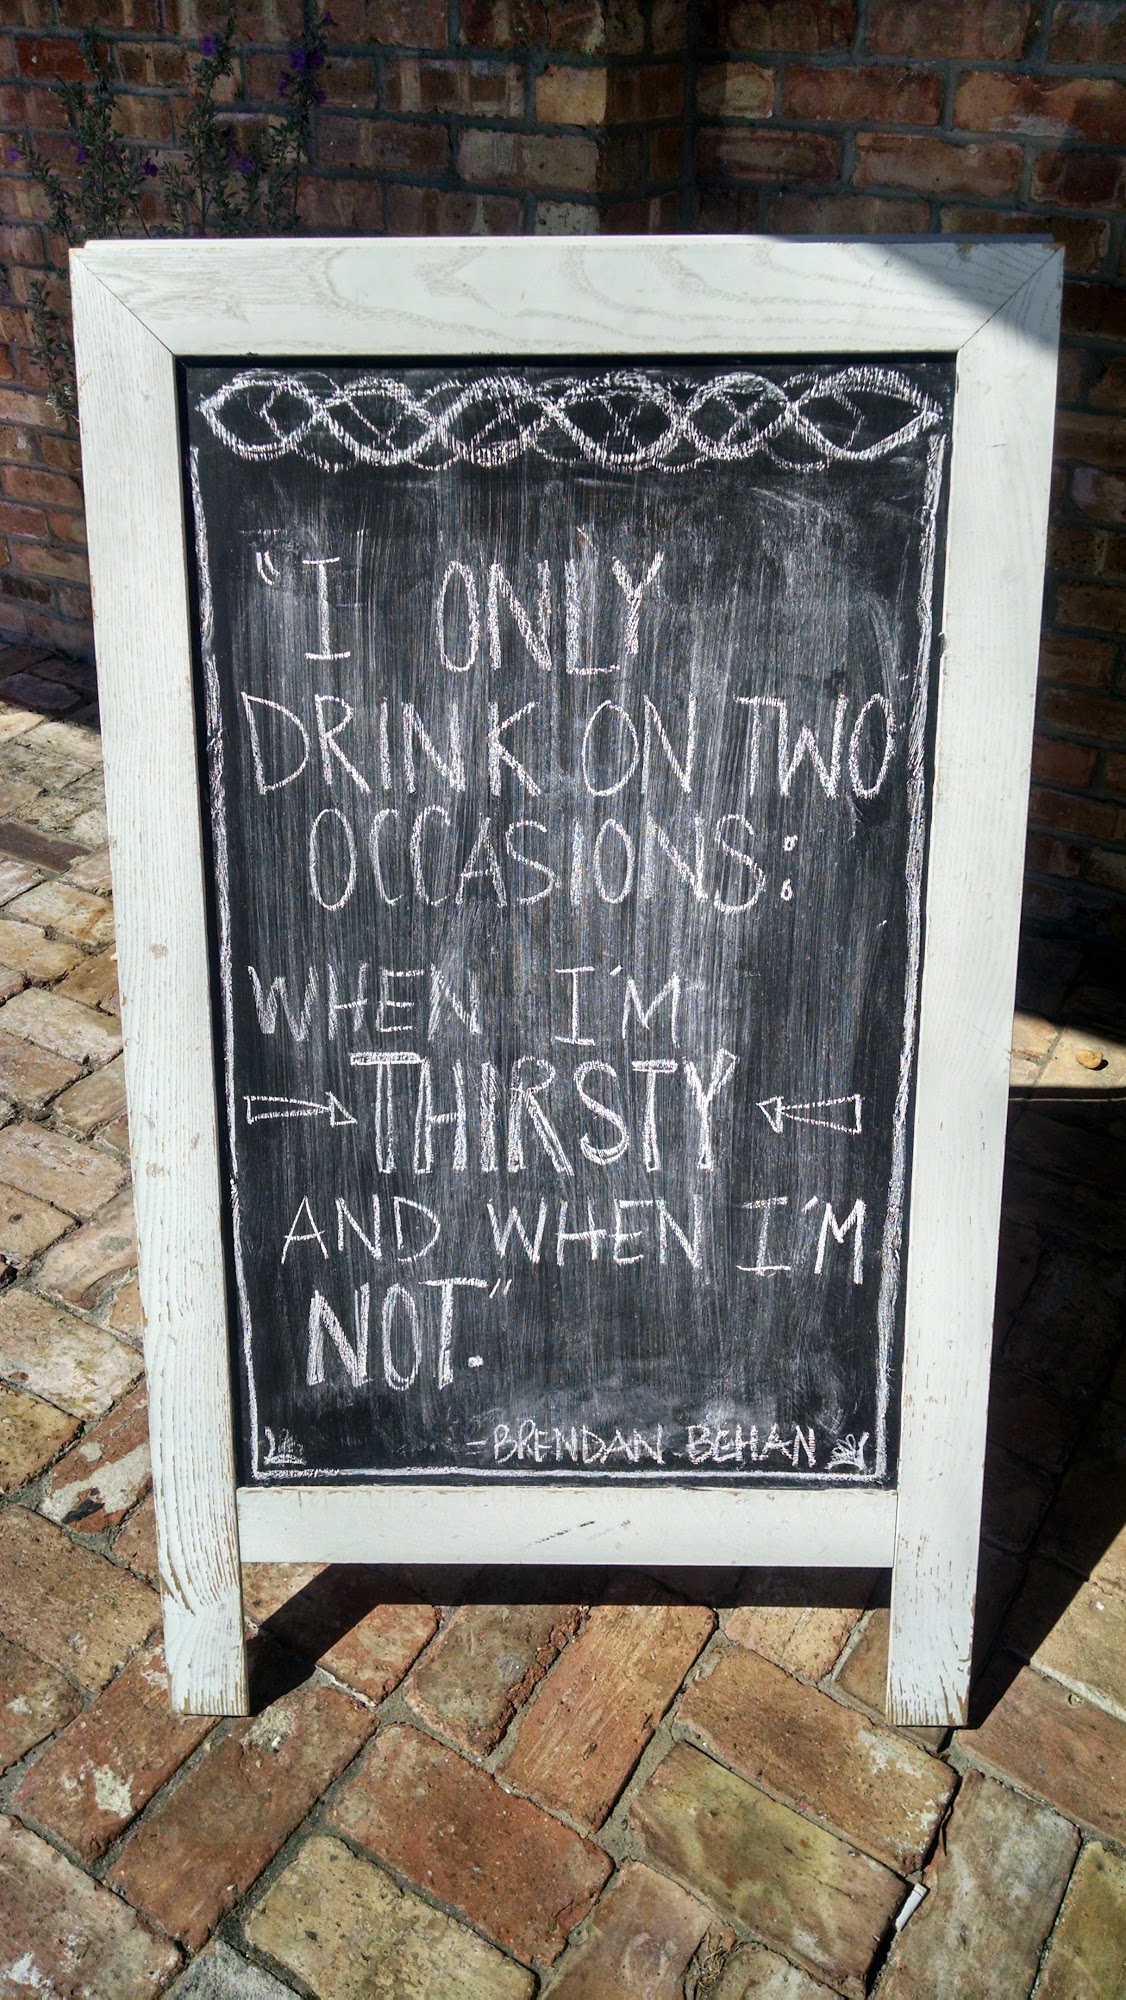 "I ONLY
DRINK ON TWO
OCCASIONS:
WHEN I'M
THIRSTY
AND WHEN I'M
NOT."
-BRENDAN BEHAN